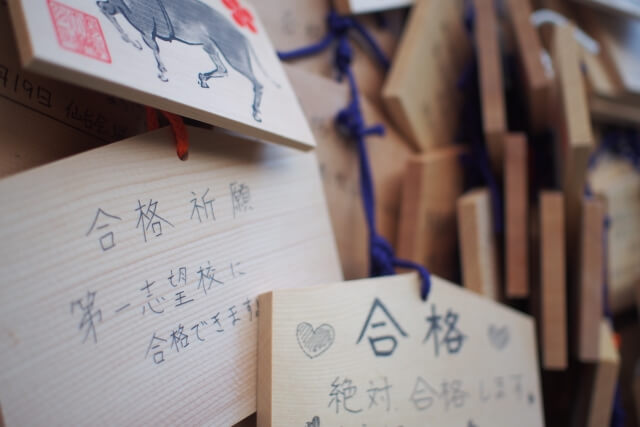 月19日
合格祈願
第一志望校に
合格できます
合格
絶対合格します。